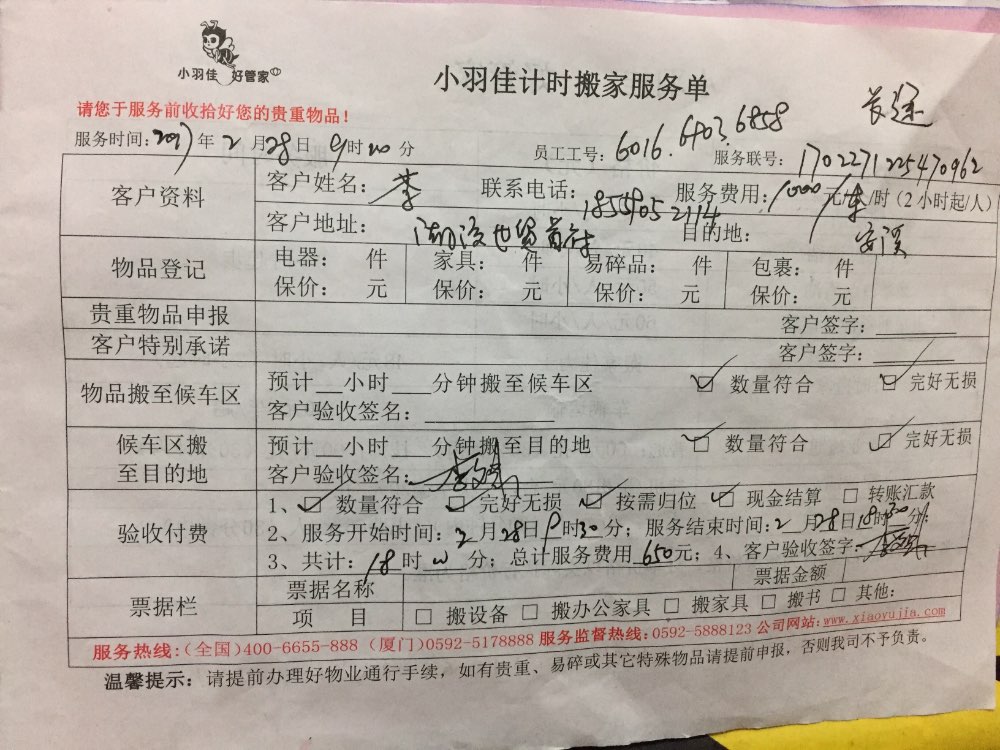 小羽佳 好管家
小羽佳计时搬家服务单
长途
请您于服务前收拾好您的贵重物品！
服务时间：2017年2月28日9时20分 员工工号：6016.6403.6858 服务联号：1702271225470962
客户资料 客户姓名：李 联系电话：18559052114 服务费用：1000元/车/时（2小时起/人）
客户地址： 目的地：安溪
物品登记 电器： 件 家具： 件 易碎品： 件 包裹： 件
保价： 元 保价： 元 保价： 元 保价： 元
贵重物品申报 客户签字：
客户特别承诺 客户签字：
物品搬至候车区 预计 小时 分钟搬至候车区 ☑ 数量符合 ☑ 完好无损
客户验收签名：
候车区搬至目的地 预计 小时 分钟搬至目的地 ☑ 数量符合 ☑ 完好无损
客户验收签名：
验收付费 1、☑ 数量符合 ☑ 完好无损 ☑ 按需归位 ☑ 现金结算 □ 转账汇款
2、服务开始时间：2月28日9时30分；服务结束时间：2月28日18时30分；
3、共计：18时 分；总计服务费用 650元；4、客户验收签字：
票据栏 票据名称 票据金额
项 目 □ 搬设备 □ 搬办公家具 □ 搬家具 □ 搬书 □ 其他：
服务热线：（全国）400-6655-888（厦门）0592-5178888 服务监督热线：0592-5888123 公司网站：www.xiaoyujia.com
温馨提示：请提前办理好物业通行手续，如有贵重、易碎或其它特殊物品请提前申报，否则我司不予负责。